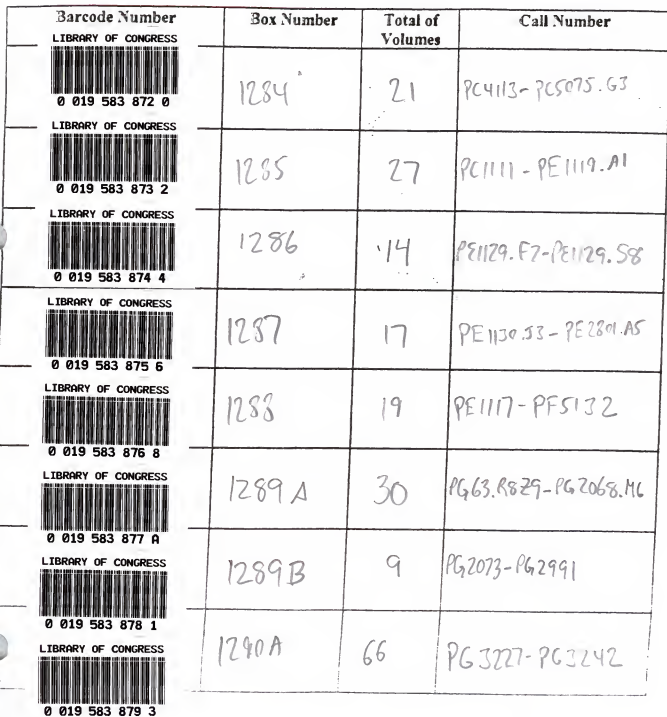 Barcode Number Box Number Total of Volumes Call Number
LIBRARY OF CONGRESS
0 019 583 872 0
1284 21 PC4113-PC5075.G3
LIBRARY OF CONGRESS
0 019 583 873 2
1285 27 PC1111-PE1119.A1
LIBRARY OF CONGRESS
0 019 583 874 4
1286 14 PE1129.F7-PE1129.S8
LIBRARY OF CONGRESS
0 019 583 875 6
1287 17 PE1130.J3-PE2801.A5
LIBRARY OF CONGRESS
0 019 583 876 8
1288 19 PE1117-PF5132
LIBRARY OF CONGRESS
0 019 583 877 A
1289A 30 PG63.R8Z9-PG2068.M6
LIBRARY OF CONGRESS
0 019 583 878 1
1289B 9 PG2073-PG2991
LIBRARY OF CONGRESS
0 019 583 879 3
1290A 66 PG3227-PG3242